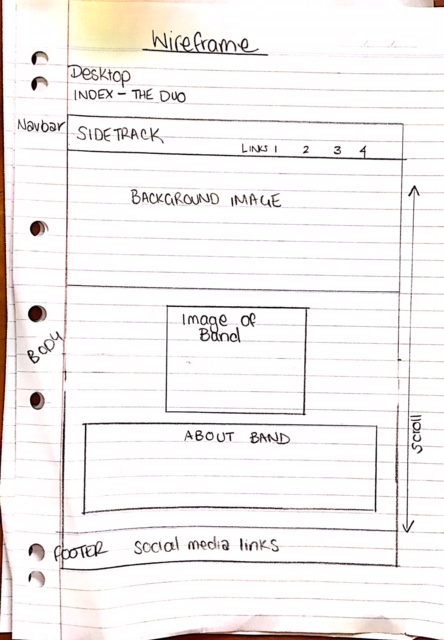 Wireframe
Desktop
INDEX - THE DUO
Navbar
SIDETRACK
LINKS 1 2 3 4
BACKGROUND IMAGE
Image of
Band
BODY
ABOUT BAND
Scroll
FOOTER
Social media links